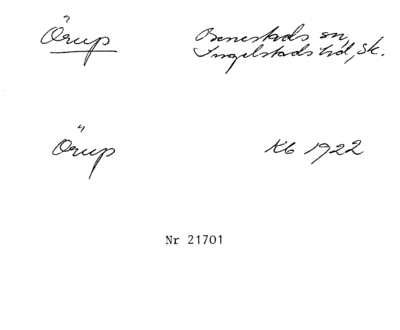 Örup
Benestads sn,
Ingelstads hd, Sk.
Örup
Kb 1922
Nr 21701